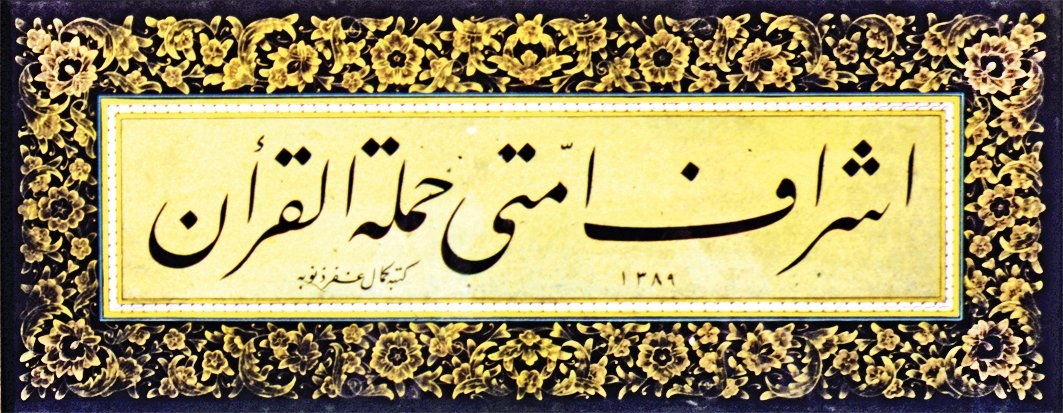 اشراف امّتى حملة القرأن
١٣٨٩
كتبه كمال غفر ذنوبه